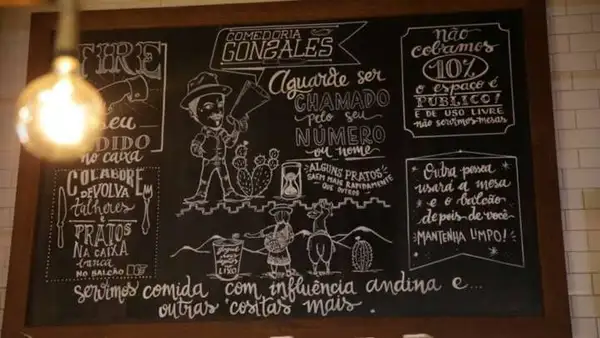 TIRE
seu
PEDIDO
no caixa
COLABORE
DEVOLVA
talheres
E
PRATOS
NA CAIXA
branca
NO BALCÃO
COMEDORIA
GONZALES
Aguarde ser
CHAMADO
pelo seu
NÚMERO
ou nome
ALGUNS PRATOS
SAEM MAIS RAPIDAMENTE
QUE OUTROS
não
cobramos
10%
o espaço é
PÚBLICO!
E DE USO LIVRE
não servimos mesas
Outra pessoa
usará a mesa
e o balcão
depois de você
MANTENHA LIMPO!
LIXO
servimos comida com influência andina e...
outras 'cositas mais